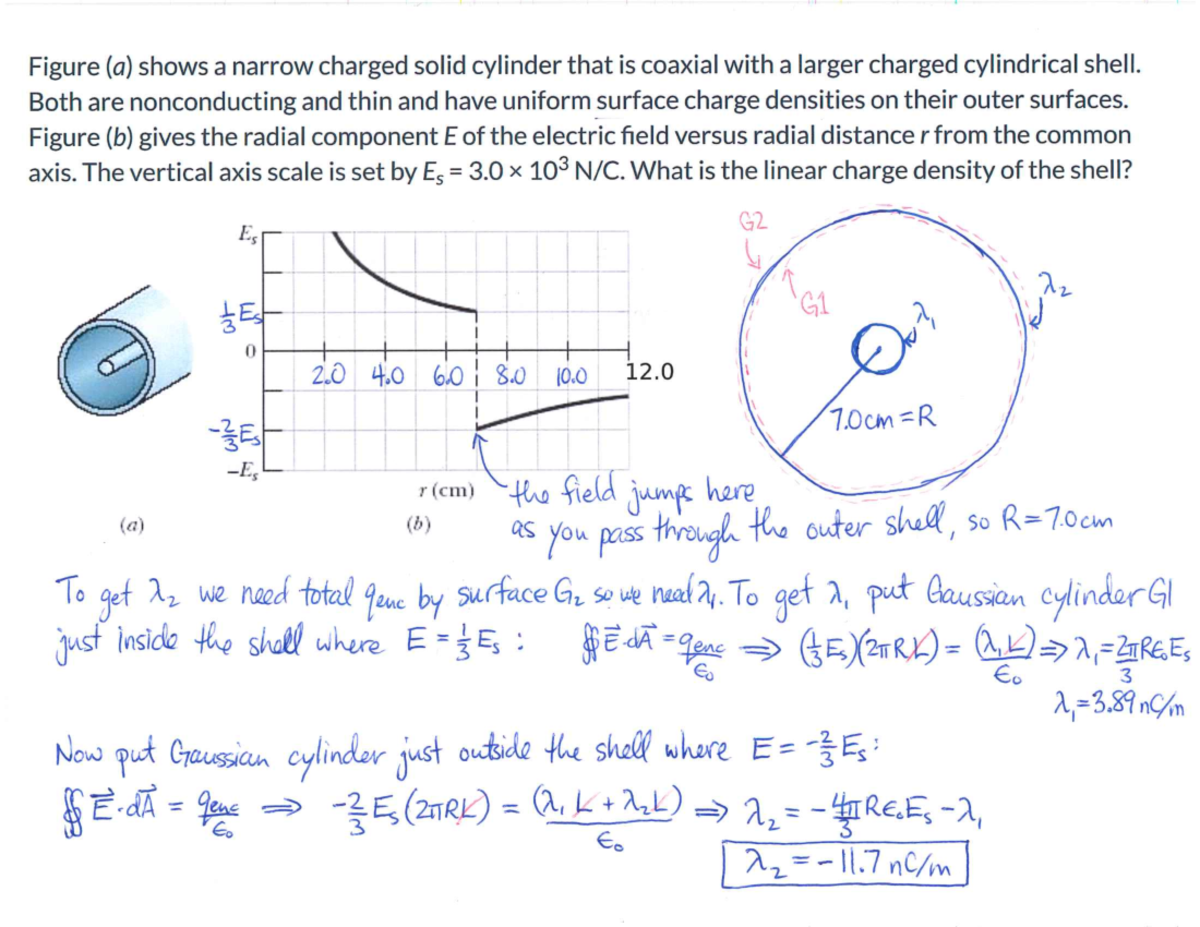 Figure (a) shows a narrow charged solid cylinder that is coaxial with a larger charged cylindrical shell.
Both are nonconducting and thin and have uniform surface charge densities on their outer surfaces.
Figure (b) gives the radial component E of the electric field versus radial distance r from the common
axis. The vertical axis scale is set by Eₛ = 3.0 × 10³ N/C. What is the linear charge density of the shell?
Eₛ
⅓Eₛ
0
-⅔Eₛ
-Eₛ
2.0 4.0 6.0 8.0 10.0 12.0
r (cm)
(a)
(b)
G2
G1
λ₁
λ₂
7.0cm = R
the field jumps here
as you pass through the outer shell, so R = 7.0cm
To get λ₂ we need total qenc by surface G₂ so we need λ₁. To get λ₁ put Gaussian cylinder G1
just inside the shell where E = ⅓Eₛ : ∯E⃗·dA⃗ = qenc/ϵ₀ ⇒ (⅓Eₛ)(2πRL) = (λ₁L)/ϵ₀ ⇒ λ₁ = 2πRϵ₀Eₛ/3
λ₁ = 3.89 nC/m
Now put Gaussian cylinder just outside the shell where E = -⅔Eₛ :
∯E⃗·dA⃗ = qenc/ϵ₀ ⇒ -⅔Eₛ(2πRL) = (λ₁L + λ₂L)/ϵ₀ ⇒ λ₂ = -4π/3 Rϵ₀Eₛ - λ₁
λ₂ = -11.7 nC/m